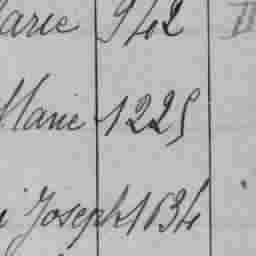 Marie 942 II
Marie 1225
Joseph 1634